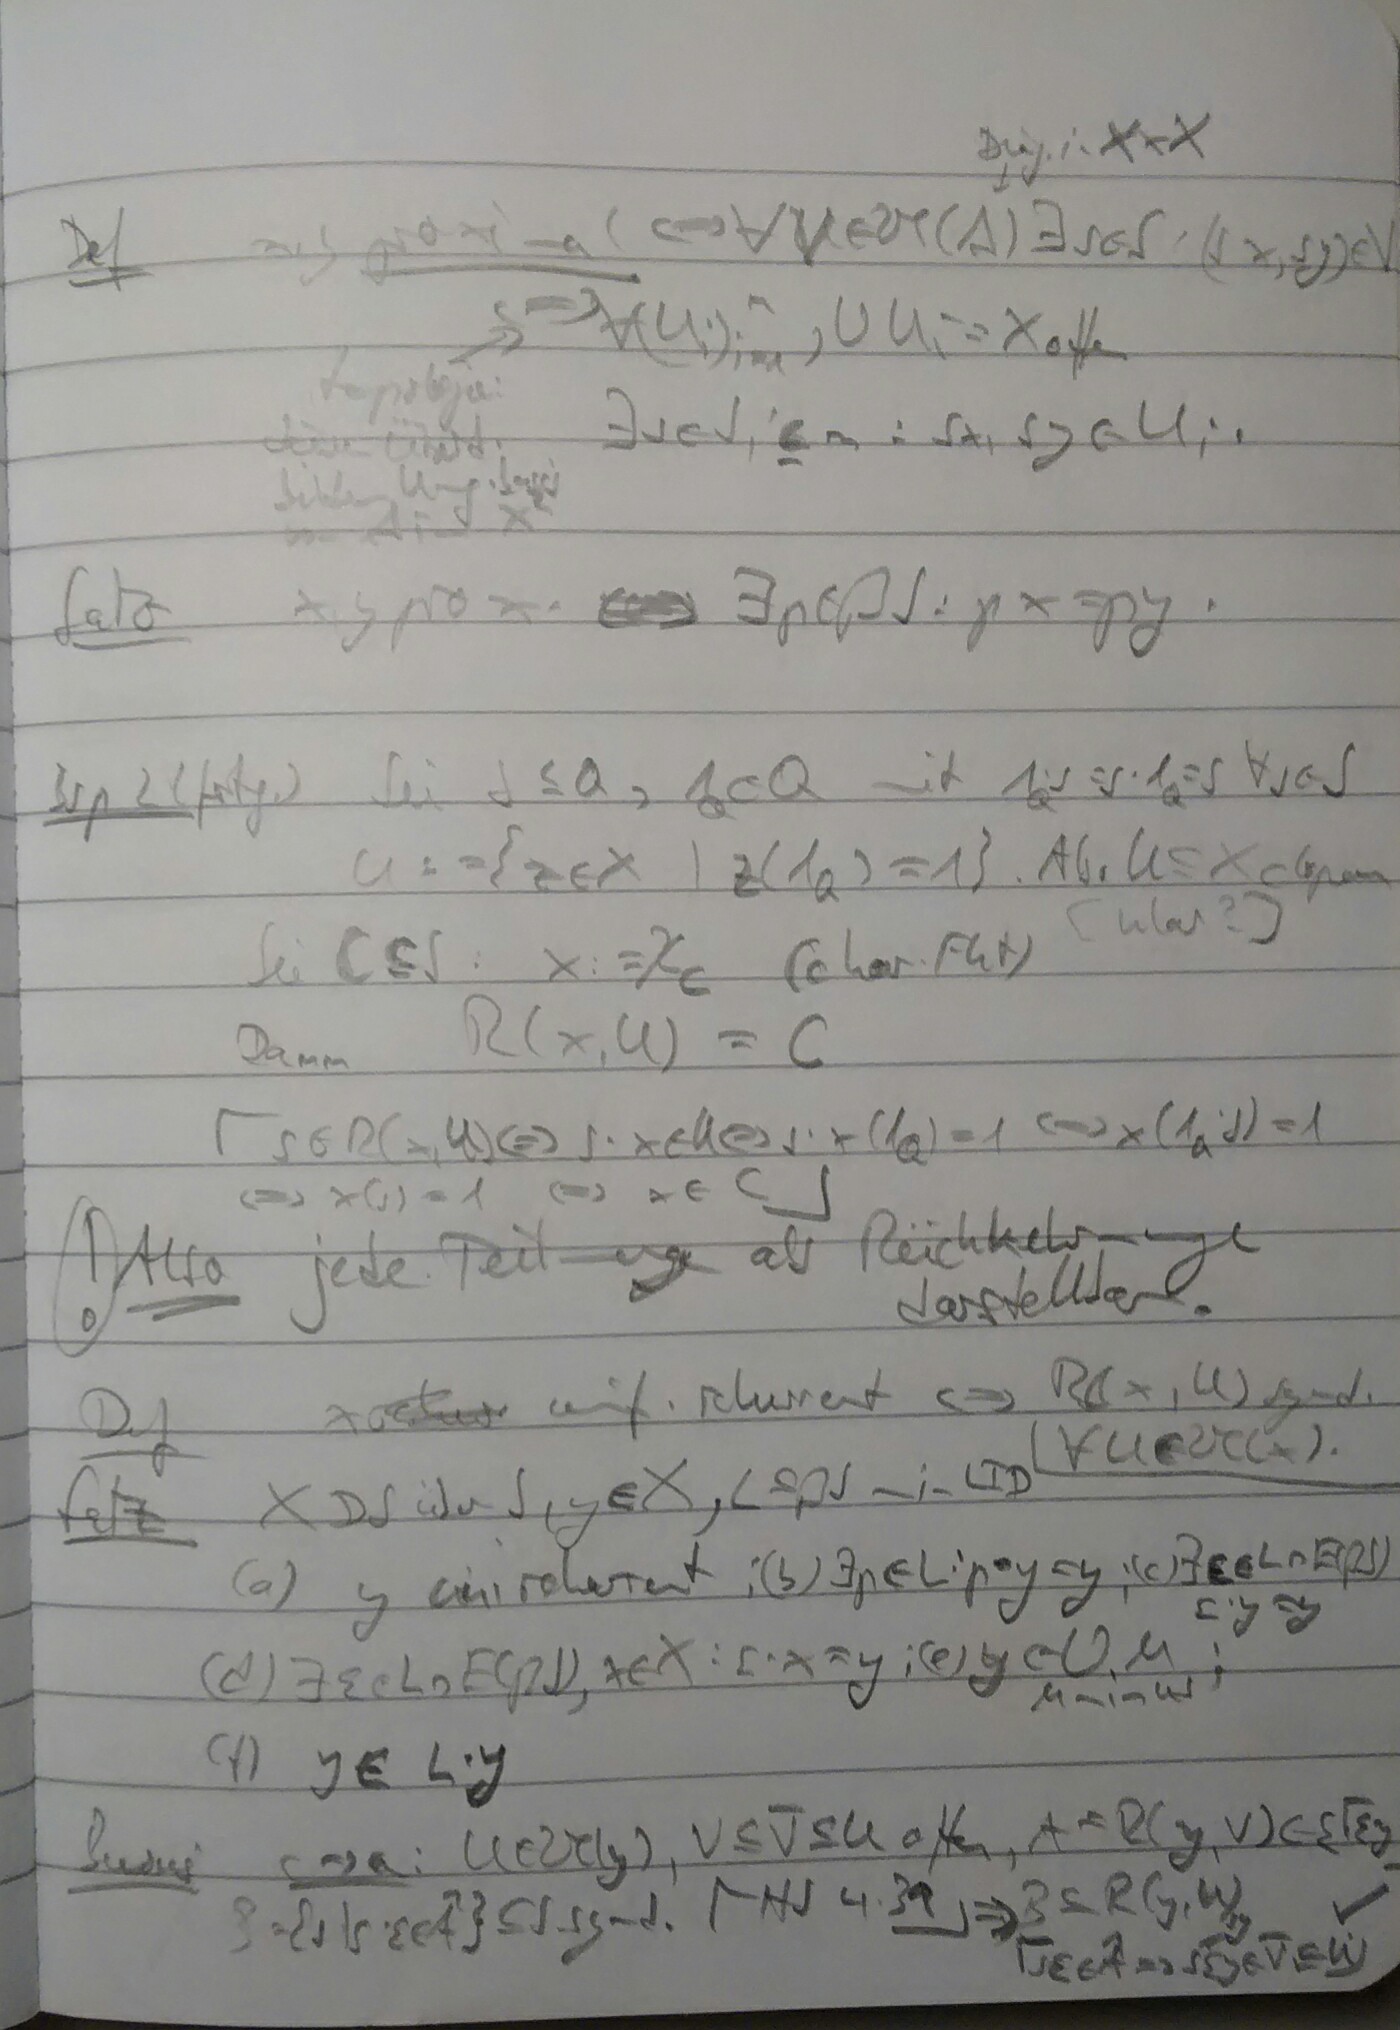 Diag. i. X×X
Def x,y proximal ⇔ ∀V∈𝒰(Δ) ∃s∈S: (sx,sy)∈V
⇔ ∀(Ui)i=1^n, ∪Ui = X offen
Topologie:
∃s∈S, i≤n: sx, sy∈Ui.
Umg.basis
von Δ in X²
Satz x,y prox. ⇔ ∃p∈βS: px=py.
Bsp 2 (fortg.) Sei S≤Q, 1_Q∈Q mit 1_Q·s=s·1_Q=s ∀s∈S
U:={z∈X | z(1_Q)=1}. Ab. U⊆X clopen
[klar?]
Sei C⊆S: x:=χ_C (char. Fkt)
Dann R(x,U) = C
⌈s∈R(x,U)⇔s·x∈U⇔s·x(1_Q)=1 ⇔x(1_Q·s)=1
⇔ x(s)=1 ⇔ x∈C⌋
! Also jede Teilmenge als Rückkehrmenge
darstellbar.
Def x unif. rekurrent ⇔ R(x,U) synd.
(∀U∈𝒰(x)).
Satz X DS über S, y∈X, L⊆βS min LID
(a) y uni rekurrent; (b) ∃p∈L: p·y=y; (c) ∃ε∈L∩E(βS)
ε·y=y
(d) ∃ε∈L∩E(βS), x∈X: ε·x=y; (e) y∈∪M;
M min US
(f) y∈L·y
Beweis c→a: U∈𝒰(y), V⊆V̅⊆U offen, A=R(y,V)
B={s|s·ε∈Â}⊆S synd. ⌈HS 4.39⌋ ⇒ B⊆R(y,U) ✓
⌈sε∈Â ⇒ sεy∈V̅⊆U⌋